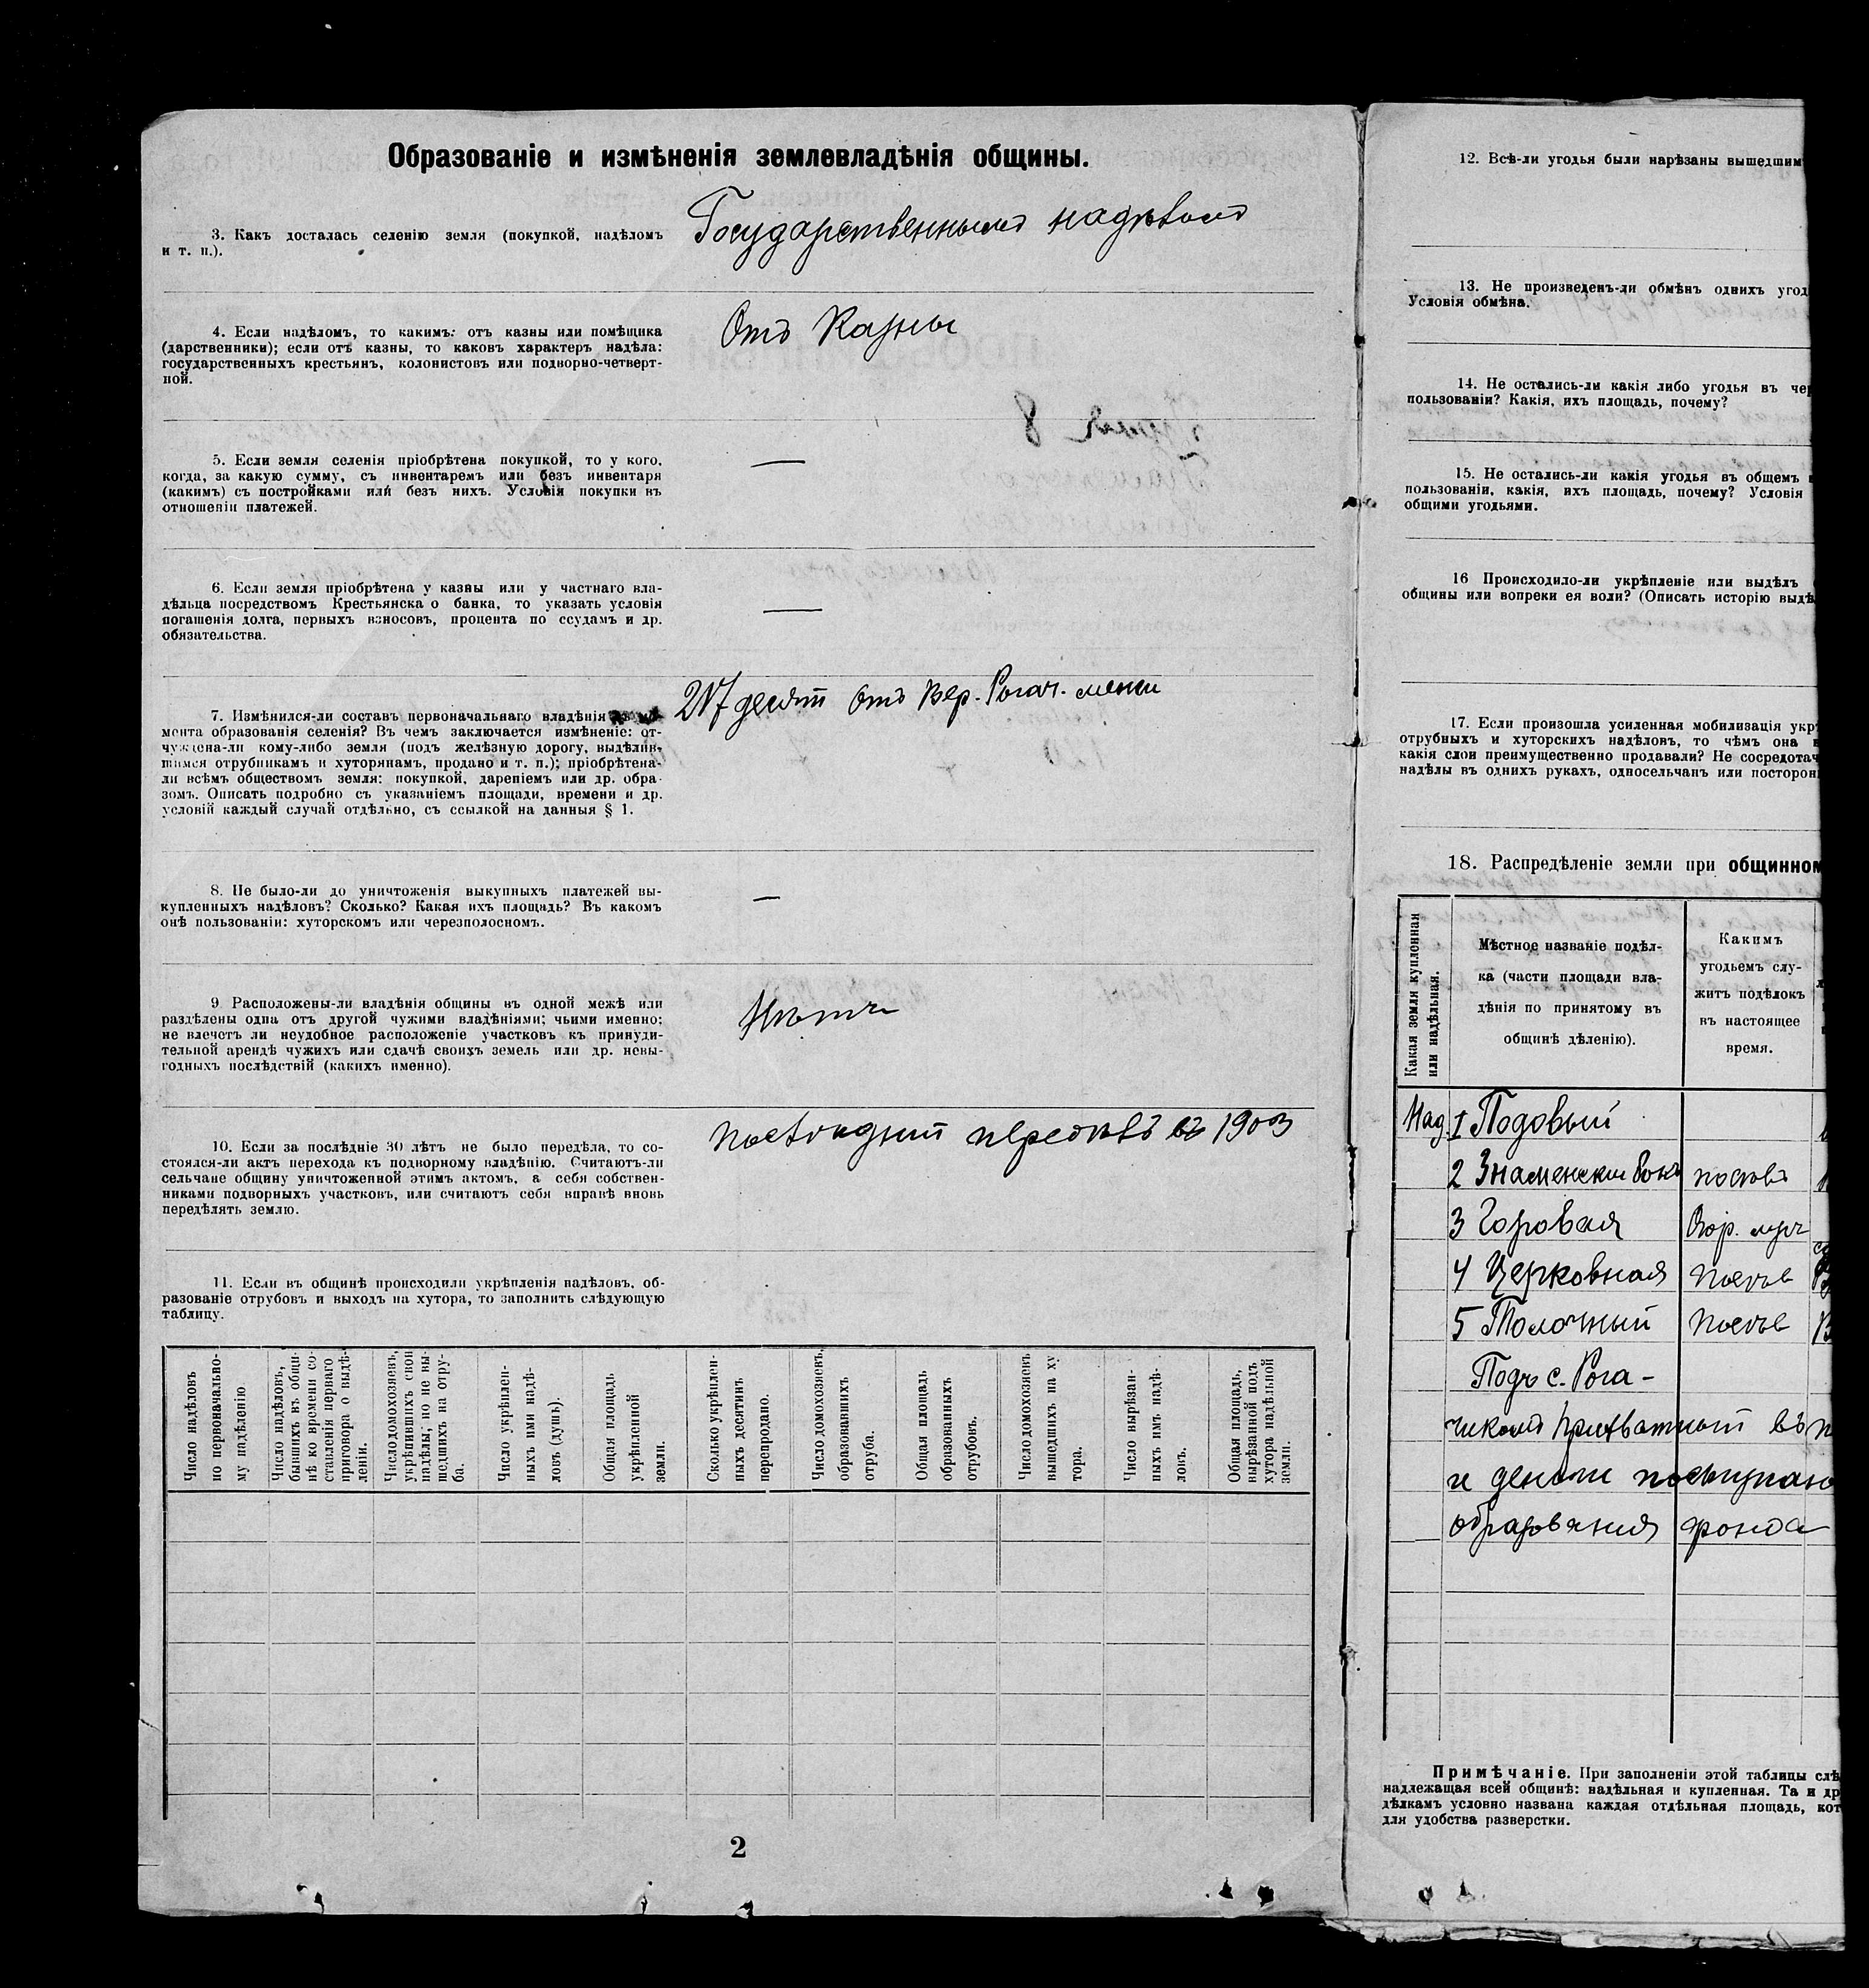 Образованіе и измѣненія землевладѣнія общины.
3. Какъ досталась селенію земля (покупкой, надѣломъ
и т. п.).
Государственнымъ надѣломъ
4. Если надѣломъ, то какимъ: отъ казны или помѣщика
(дарственники); если отъ казны, то каковъ характеръ надѣла:
государственныхъ крестьянъ, колонистовъ или подворно-четверт-
ной.
Отъ Казны
5. Если земля селенія пріобрѣтена покупкой, то у кого,
когда, за какую сумму, съ инвентаремъ или безъ инвентаря
(какимъ) съ постройками или безъ нихъ. Условія покупки въ
отношеніи платежей.
—
6. Если земля пріобрѣтена у казны или у частнаго вла-
дѣльца посредствомъ Крестьянска о банка, то указать условія
погашенія долга, первыхъ взносовъ, процента по ссудамъ и др.
обязательства.
—
7. Измѣнился-ли составъ первоначальнаго владѣнія
мента образованія селенія? Въ чемъ заключается измѣненіе: от-
чуждена-ли кому-либо земля (подъ желѣзную дорогу, выдѣлив-
шимся отрубникамъ и хуторянамъ, продано и т. п.); пріобрѣтена-
ли всѣмъ обществомъ земля: покупкой, дареніемъ или др. обра-
зомъ. Описать подробно съ указаніемъ площади, времени и др.
условій каждый случай отдѣльно, съ ссылкой на данныя § 1.
217 десят отъ Вер. Рогач.
8. Не было-ли до уничтоженія выкупныхъ платежей вы-
купленныхъ надѣловъ? Сколько? Какая ихъ площадь? Въ какомъ
онѣ пользованіи: хуторскомъ или черезполосномъ.
—
9. Расположены-ли владѣнія общины въ одной межѣ или
раздѣлены одна отъ другой чужими владѣніями; чьими именно;
не влечетъ ли неудобное расположеніе участковъ къ принуди-
тельной арендѣ чужихъ или сдачѣ своихъ земель или др. невы-
годныхъ послѣдствій (какихъ именно).
10. Если за послѣдніе 30 лѣтъ не было передѣла, то со-
стоялся-ли актъ перехода къ подворному владѣнію. Считаютъ-ли
сельчане общину уничтоженной этимъ актомъ, а себя собствен-
никами подворныхъ участковъ, или считаютъ себя вправѣ вновь
передѣлять землю.
передѣлъ въ 1903
11. Если въ общинѣ происходили укрѣпленія надѣловъ, об-
разованіе отрубовъ и выходъ на хутора, то заполнить слѣдующую
таблицу.
Число надѣловъ
по первоначально-
му надѣленію
Число надѣловъ,
бывшихъ въ общи-
нѣ ко времени со-
ставленія перваго
приговора о выдѣ-
леніи.
Число домохозяевъ,
укрѣпившихъ свои
надѣлы; но не вы-
шедшихъ на отру-
ба.
Число укрѣплен-
ныхъ ими надѣ-
ловъ (душъ).
Общая площадь
укрѣпленной
земли.
Сколько укрѣплен-
ныхъ десятинъ
перепродано.
Число домохозяевъ,
образовавшихъ
отруба.
Общая площадь
образованныхъ
отрубовъ.
Число домохозяевъ
вышедшихъ на ху
тора.
Число вырѣзан-
ныхъ имъ надѣ-
ловъ.
Общая площадь,
вырѣзанной подъ
хутора надѣльной
земли.
2
12. Всѣ-ли угодья были нарѣзаны вышедшим
13. Не произведенъ-ли обмѣнъ однихъ угод
Условія обмѣна.
14. Не остались-ли какія либо угодья въ чер
пользованіи? Какія, ихъ площадь, почему?
15. Не остались-ли какія угодья въ общемъ
пользованіи, какія, ихъ площадь, почему? Условія
общими угодьями.
16 Происходило-ли укрѣпленіе или выдѣлъ
общины или вопреки ея воли? (Описать исторію выдѣ
17. Если произошла усиленная мобилизація укр
отрубныхъ и хуторскихъ надѣловъ, то чѣмъ она
какія слои преимущественно продавали? Не сосредотач
надѣлы въ однихъ рукахъ, односельчанъ или посторон
18. Распредѣленіе земли при общинном
Какая земля купленная
или надѣльная.
Мѣстное названіе подѣл-
ка (части площади вла-
дѣнія по принятому въ
общинѣ дѣленію).
Какимъ
угодьемъ слу-
житъ подѣлокъ
въ настоящее
время.
Над. 1 Подовый
2 Знаменский
3 Горовая
4 Церковная
5 Толочный
Подъ с. Рога-
чикомъ
и деньги поступаю
образования фонда
Примѣчаніе. При заполненіи этой таблицы слѣ
надлежащая всей общинѣ: надѣльная и купленная. Та и др
дѣлкамъ условно названа каждая отдѣльная площадь, кот
для удобства разверстки.